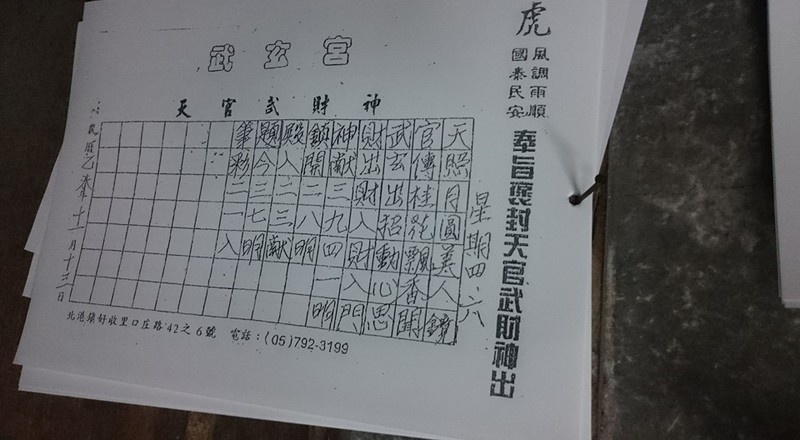 虎
風調雨順
國泰民安
奉旨褒封天官武財神出
星期四.六
武玄宮
天官武財神
天照月圓美人鏡
官傳桂花飄香聞
武玄出招動心思
財出財入財入門
神獻三九四一明
鎮開二八明
殿入二三獻
題今三七明
筆彩二一入
年十一月十三日
北港鎮好收里口庄路42之6號 電話：(05)792-3199